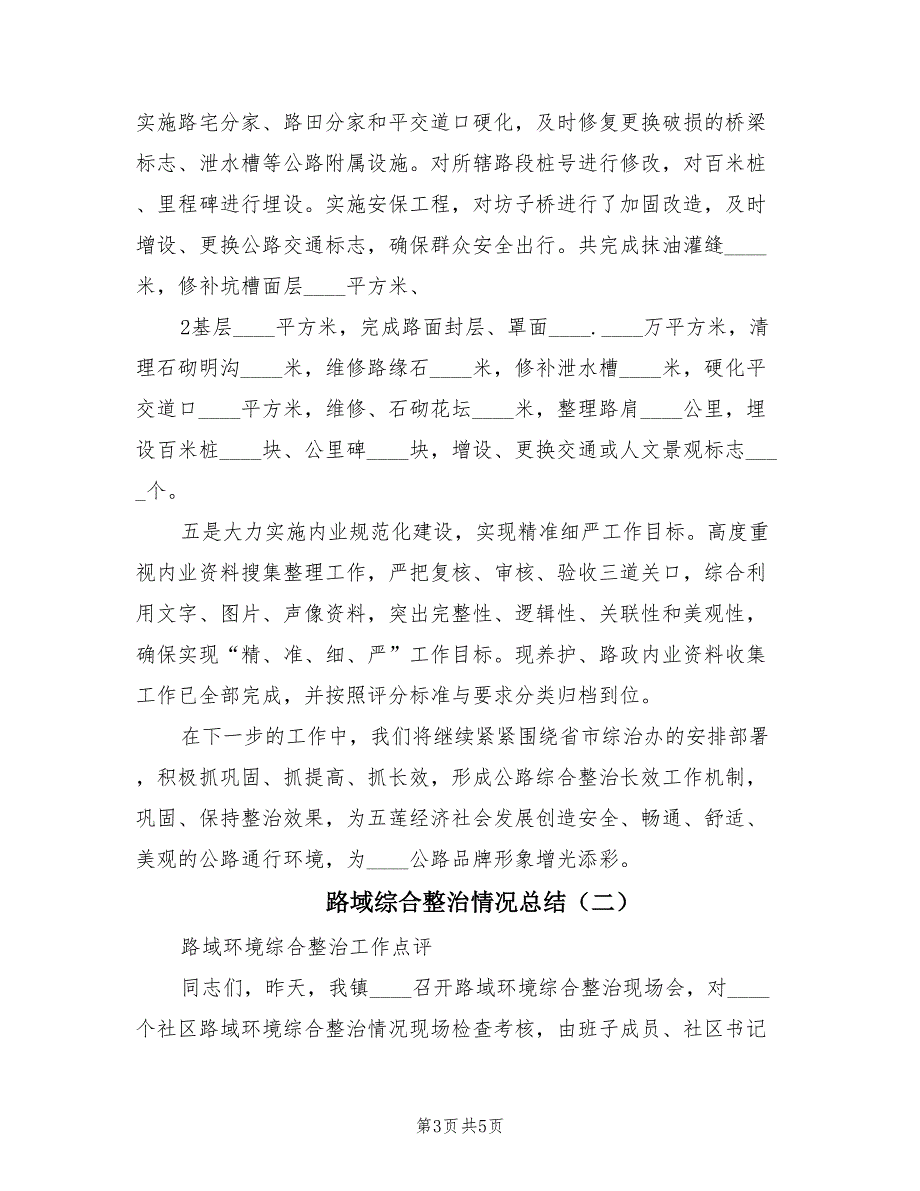 实施路宅分家、路田分家和平交道口硬化，及时修复更换破损的桥梁
标志、泄水槽等公路附属设施。对所辖路段桩号进行修改，对百米桩
、里程碑进行埋设。实施安保工程，对坊子桥进行了加固改造，及时
增设、更换公路交通标志，确保群众安全出行。共完成抹油灌缝____
米，修补坑槽面层____平方米、
2基层____平方米，完成路面封层、罩面____.____万平方米，清
理石砌明沟____米，维修路缘石____米，修补泄水槽____米，硬化平
交道口____平方米，维修、石砌花坛____米，整理路肩____公里，埋
设百米桩____块、公里碑____块，增设、更换交通或人文景观标志___
_个。
五是大力实施内业规范化建设，实现精准细严工作目标。高度重
视内业资料搜集整理工作，严把复核、审核、验收三道关口，综合利
用文字、图片、声像资料，突出完整性、逻辑性、关联性和美观性，
确保实现“精、准、细、严”工作目标。现养护、路政内业资料收集
工作已全部完成，并按照评分标准与要求分类归档到位。
在下一步的工作中，我们将继续紧紧围绕省市综治办的安排部署
，积极抓巩固、抓提高、抓长效，形成公路综合整治长效工作机制，
巩固、保持整治效果，为五莲经济社会发展创造安全、畅通、舒适、
美观的公路通行环境，为____公路品牌形象增光添彩。
路域综合整治情况总结（二）
路域环境综合整治工作点评
同志们，昨天，我镇____召开路域环境综合整治现场会，对____
个社区路域环境综合整治情况现场检查考核，由班子成员、社区书记
第3页共5页